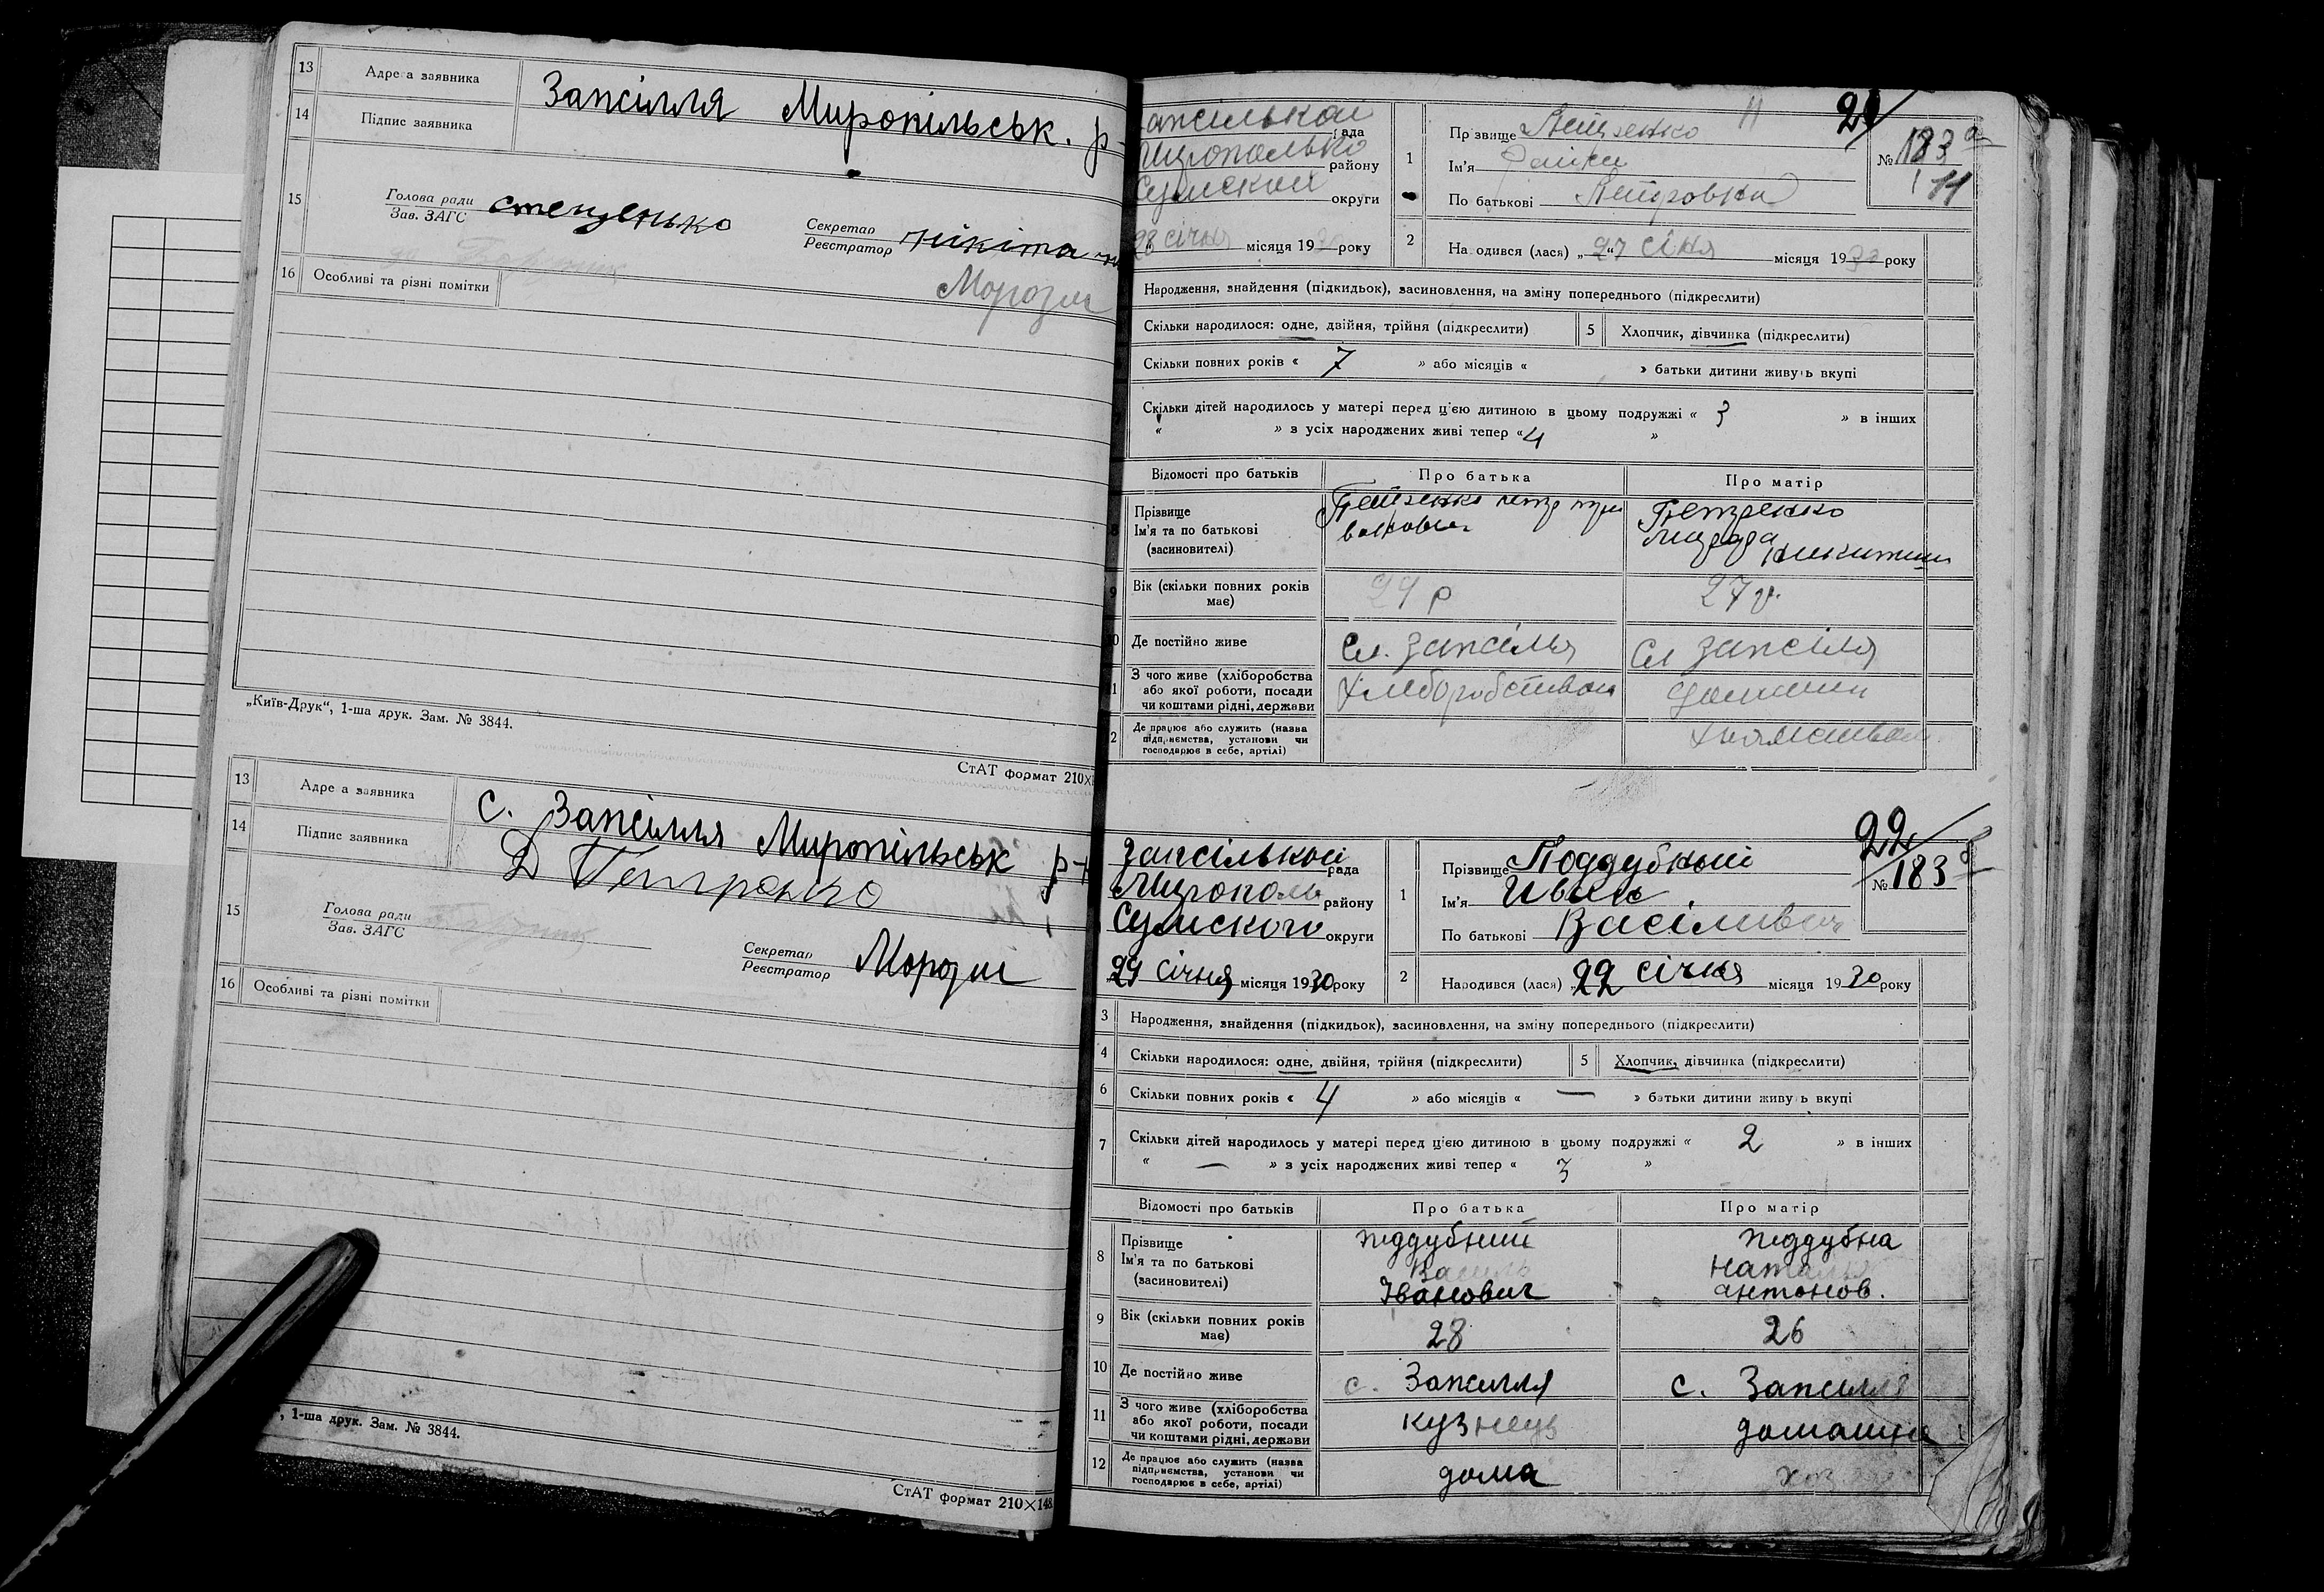 13 Адреса заявника Запсілля Миропільськ. р-
14 Підпис заявника
15 Голова ради
Зав. ЗАГС стенценько Секретар
Реєстратор нікіта
Мороз
16 Особливі та різні помітки
„Київ-Друк“, 1-ша друк. Зам. № 3844.
СтАТ формат 210×
13 Адреса заявника с. Запсілля Миропільськ р-н
14 Підпис заявника Д Петренко
15 Голова ради
Зав. ЗАГС
Секретар
Реєстратор Мороз
16 Особливі та різні помітки
, 1-ша друк. Зам. № 3844.
СтАТ формат 210×148
апсількои рада
Мирополько району
Сумскои округи
28 січня місяця 1930 року
1 Прізвище Петренко
Ім'я
По батькові Петровна
21
№ 183 а
11
2 Народився (лася) „27 сікя місяця 1930 року
Народження, знайдення (підкидьок), засиновлення, на зміну попереднього (підкреслити)
Скільки народилося: одне, двійня, трійня (підкреслити) 5 Хлопчик, дівчинка (підкреслити)
Скільки повних років « 7 » або місяців « » батьки дитини живуть вкупі
Скільки дітей народилось у матері перед цією дитиною в цьому подружжі « 3 » в інших
« » з усіх народжених живі тепер « 4 »
Відомості про батьків Про батька Про матір
8 Прізвище
Ім'я та по батькові
(засиновителі)
Петренко петр
Петренко
никитиш
9 Вік (скільки повних років
має) 29 р 27 р.
10 Де постійно живе Сл. Запсілья Сл Запсіля
11 З чого живе (хліборобства
або якої роботи, посади
чи коштами рідні, держави Хлеборобством
12 Де працює або служить (назва
підприємства, установи чи
господарює в себе, артілі)
Запсількой рада
Мирополь району
Сумского округи
29 січня місяця 1930 року
1 Прізвище Поддубный
Ім'я Иван
По батькові Васіливич
22
№ 183 б
2 Народився (лася) „22 січня місяця 1930 року
3 Народження, знайдення (підкидьок), засиновлення, на зміну попереднього (підкреслити)
4 Скільки народилося: одне, двійня, трійня (підкреслити) 5 Хлопчик, дівчинка (підкреслити)
6 Скільки повних років « 4 » або місяців « — » батьки дитини живуть вкупі
7 Скільки дітей народилось у матері перед цією дитиною в цьому подружжі « 2 » в інших
« — » з усіх народжених живі тепер « 3 »
Відомості про батьків Про батька Про матір
8 Прізвище
Ім'я та по батькові
(засиновителі)
піддубний
Василь
Іванович
піддубна
Наталья
антонов.
9 Вік (скільки повних років
має) 28 26
10 Де постійно живе с. Запсилля с. Запсилля
11 З чого живе (хліборобства
або якої роботи, посади
чи коштами рідні, держави кузнець домашне
12 Де працює або служить (назва
підприємства, установи чи
господарює в себе, артілі) дома